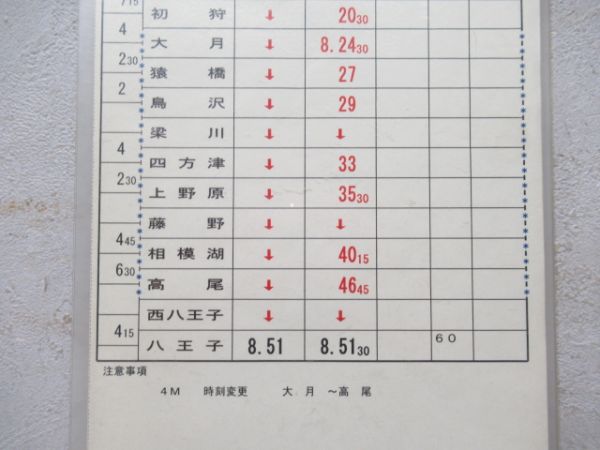 7 15
初狩 ↓ 20 30
4
大月 ↓ 8.24 30
2 30
猿橋 ↓ 27
2
鳥沢 ↓ 29
梁川 ↓ ↓
4
四方津 ↓ 33
2 30
上野原 ↓ 35 30
藤野 ↓ ↓
4 45
相模湖 ↓ 40 15
6 30
高尾 ↓ 46 45
西八王子 ↓ ↓
4 15
八王子 8.51 8.51 30 60
注意事項
4M 時刻変更 大月 ~高尾